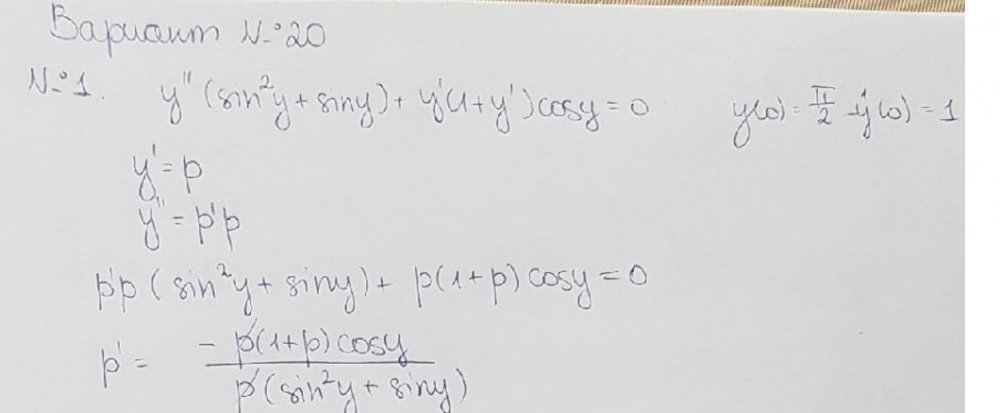 Вариант №20
№1. y''(sin²y + siny) + y'(1+y')cosy = 0 y(0) = π/2 y'(0) = 1
y' = p
y'' = p'p
p'p (sin²y + siny) + p(1+p) cosy = 0
p' = - p(1+p) cosy / p(sin²y + siny)